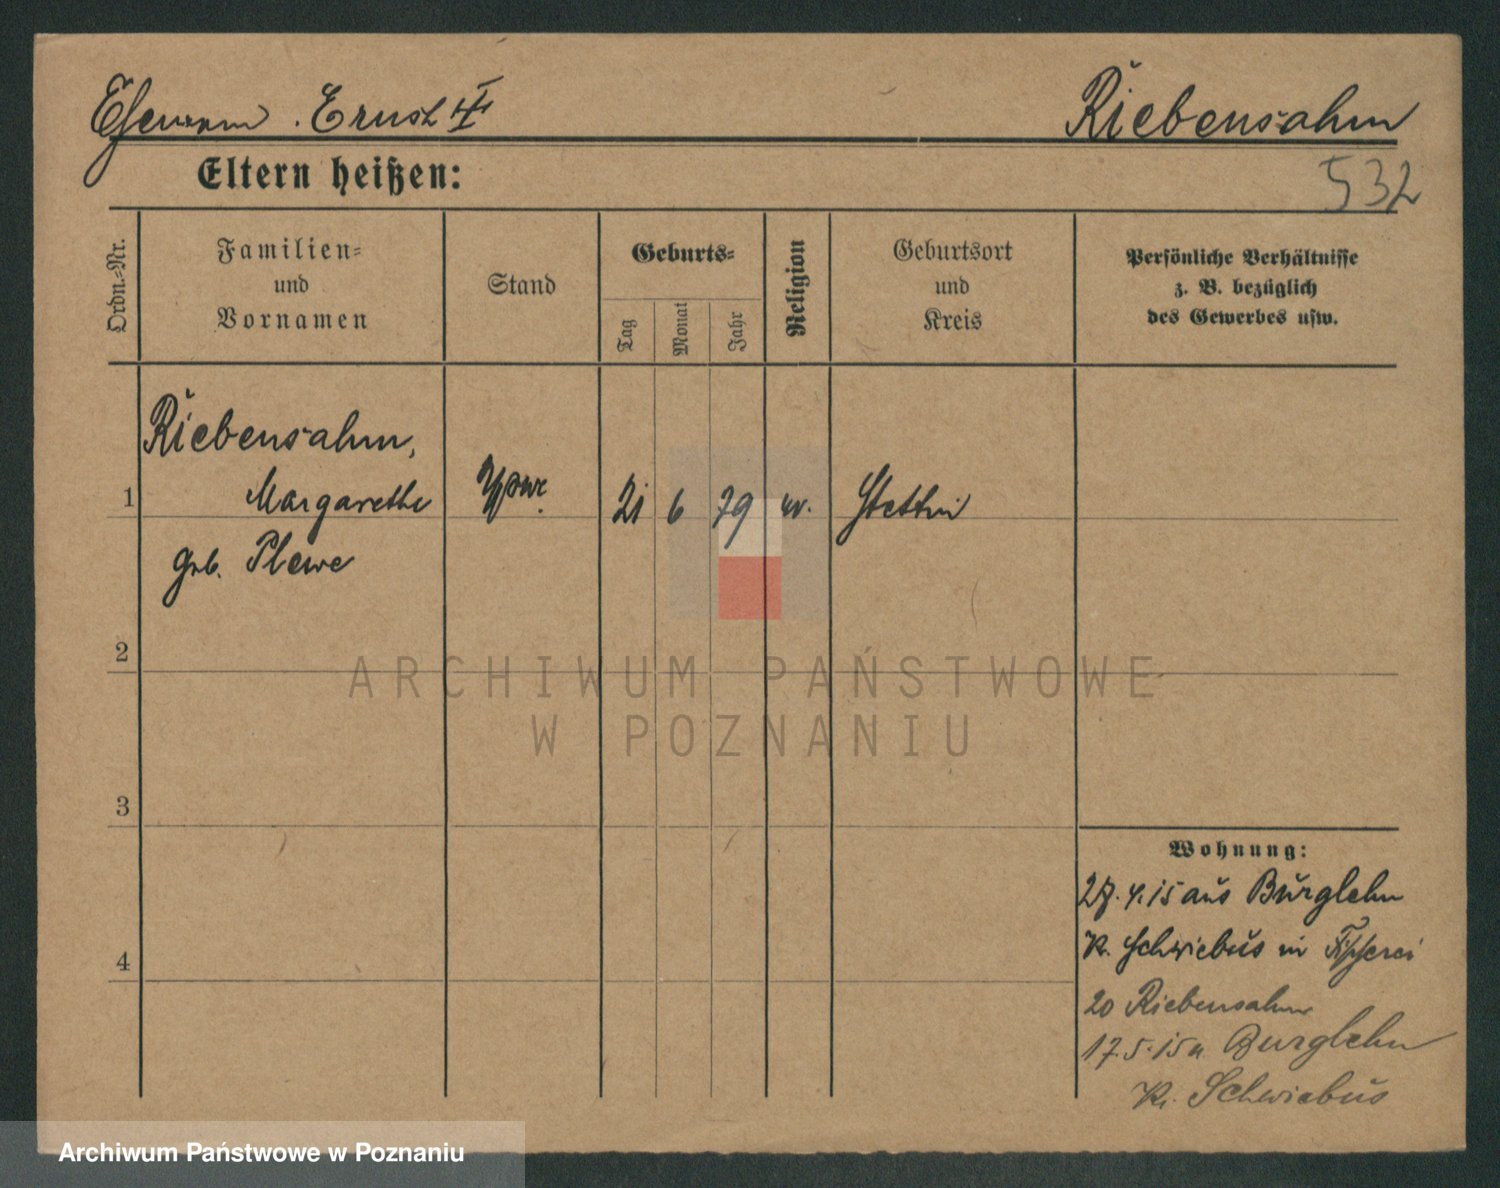 Ehemann. Ernst II Riebensahm
Eltern heißen:
532
Ordn.-Nr.
Familien-
und
Vornamen
Stand
Geburts-
Tag
Monat
Jahr
Religion
Geburtsort
und
Kreis
Persönliche Verhältnisse
z. B. bezüglich
des Gewerbes usw.
Riebensahm,
1 Margarethe 21 6 79 ev. Stettin
geb. Plewe
2
ARCHIWUM PAŃSTWOWE
W POZNANIU
3
Wohnung:
27.4.15 aus Burglehn
Kr. Schwiebus in Fischerei
4
20 Riebensahm
17.5.15 n Burglehn
Kr. Schwiebus
Archiwum Państwowe w Poznaniu